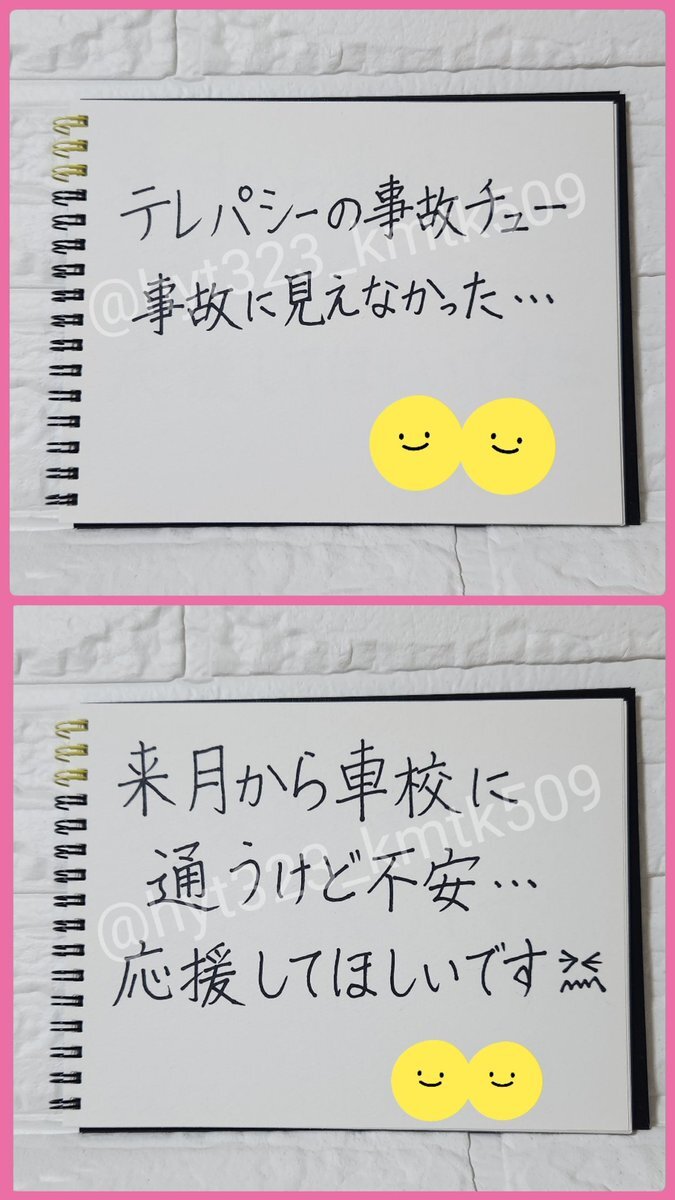 テレパシーの事故チュー
事故に見えなかった…
@hyt323_kmtk509
来月から車校に
通うけど不安…
応援してほしいです
@hyt323_kmtk509